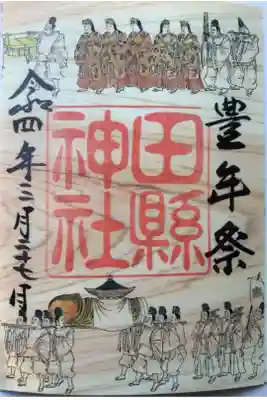 豊年祭
田縣
神社
令和四年三月二十七日